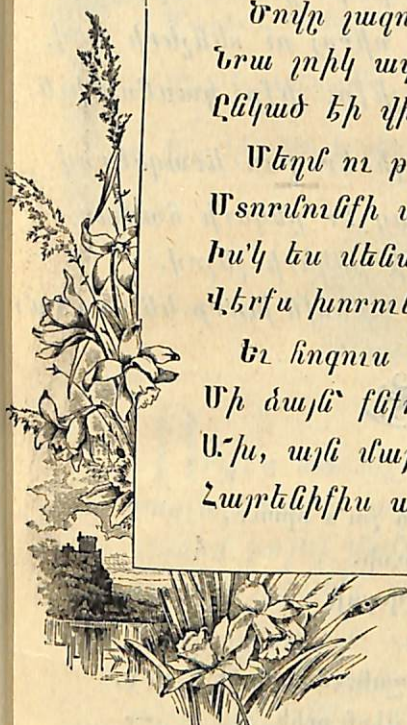 Ծովը լազո
Նրա լռիկ ափ
Ընկած էի վի
Մեղմ ու ք
Մտորմունքի ա
Իսկ ես մենա
Վէրքս խորու
Եւ հոգուս
Մի ձայն՝ քնք
Ա՜խ, այն մար
Հայրենիքիս ա